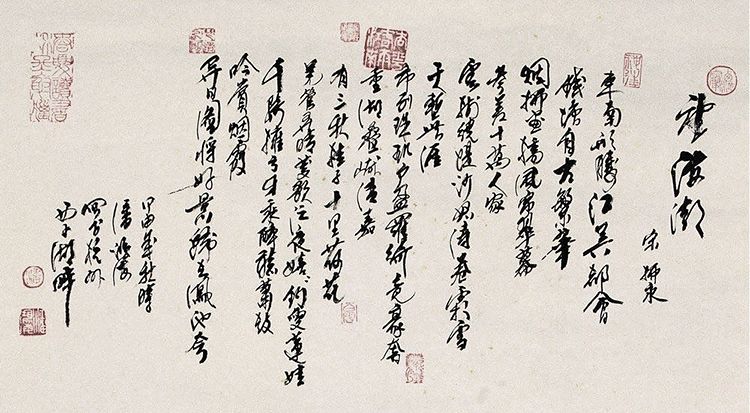 望海潮
宋 柳永
東南形勝江吳都會
錢塘自古繁華
烟柳畫橋風簾翠幕
參差十萬人家
雲樹繞堤沙怒濤卷霜雪
天塹無涯
市列珠璣户盈羅綺競豪奢
重湖疊巘清嘉
有三秋桂子十里荷花
羌管弄晴菱歌泛夜嬉嬉釣叟蓮娃
千騎擁高牙乘醉聽簫鼓
吟賞烟霞
异日圖將好景歸去鳳池夸
甲申
西子湖畔